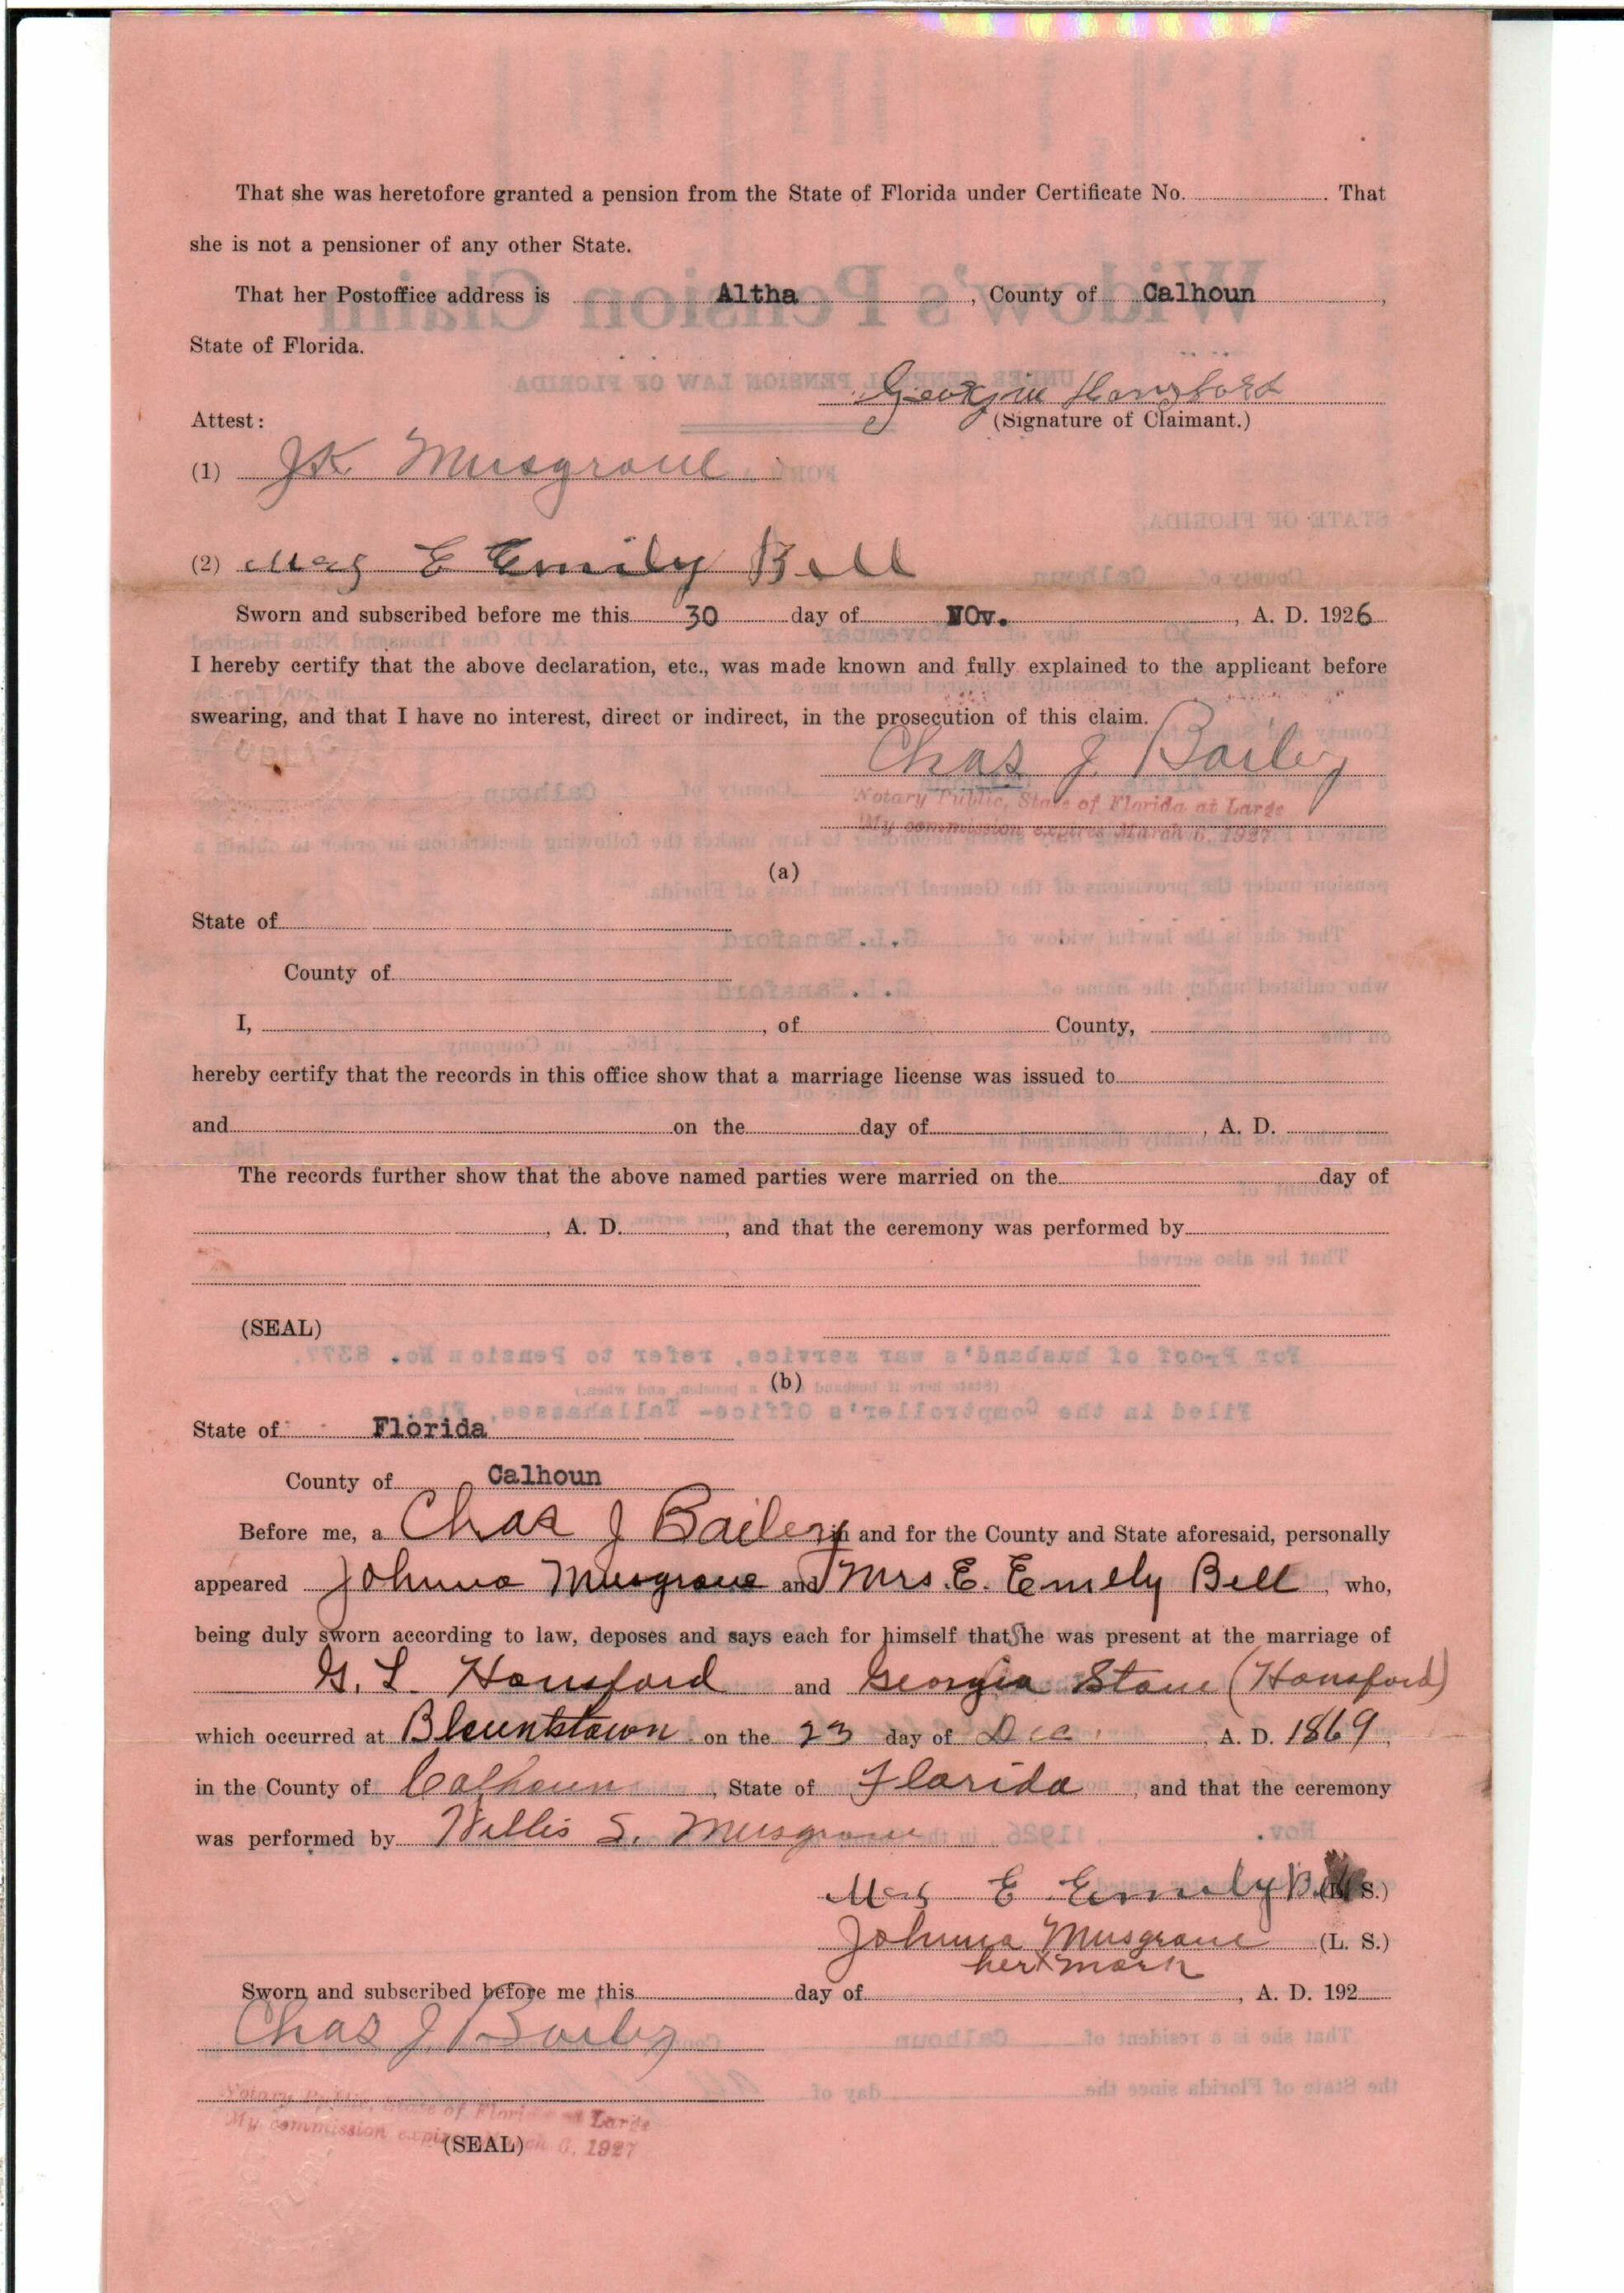 That she was heretofore granted a pension from the State of Florida under Certificate No. . That
she is not a pensioner of any other State.
That her Postoffice address is Altha , County of Calhoun ,
State of Florida.
Georgia Hansford
Attest: (Signature of Claimant.)
(1) JK Musgrove
(2) Mrs E Emily Bell
Sworn and subscribed before me this 30 day of NOv. , A. D. 1926
I hereby certify that the above declaration, etc., was made known and fully explained to the applicant before
swearing, and that I have no interest, direct or indirect, in the prosecution of this claim.
Chas J. Bailey
Notary Public, State of Florida at Large
My commission expires March 6, 1927
(a)
State of
County of
I, , of County,
hereby certify that the records in this office show that a marriage license was issued to
and on the day of , A. D.
The records further show that the above named parties were married on the day of
, A. D. , and that the ceremony was performed by
(SEAL)
(b)
State of Florida
County of Calhoun
Before me, a Chas J Bailey in and for the County and State aforesaid, personally
appeared Johnna Musgrove and Mrs. E. Emely Bell , who,
being duly sworn according to law, deposes and says each for himself that She was present at the marriage of
G. L. Hansford and Georgia Stone (Hansford)
which occurred at Blountstown on the 23 day of Dec. , A. D. 1869,
in the County of Calhoun , State of Florida , and that the ceremony
was performed by Willis S. Musgrove
Mrs E Emely (L. S.)
Johnna Musgrove (L. S.)
her x mark
Sworn and subscribed before me this day of , A. D. 192
Chas J. Bailey
Notary Public, State of Florida at Large
My commission expires March 6, 1927
(SEAL)